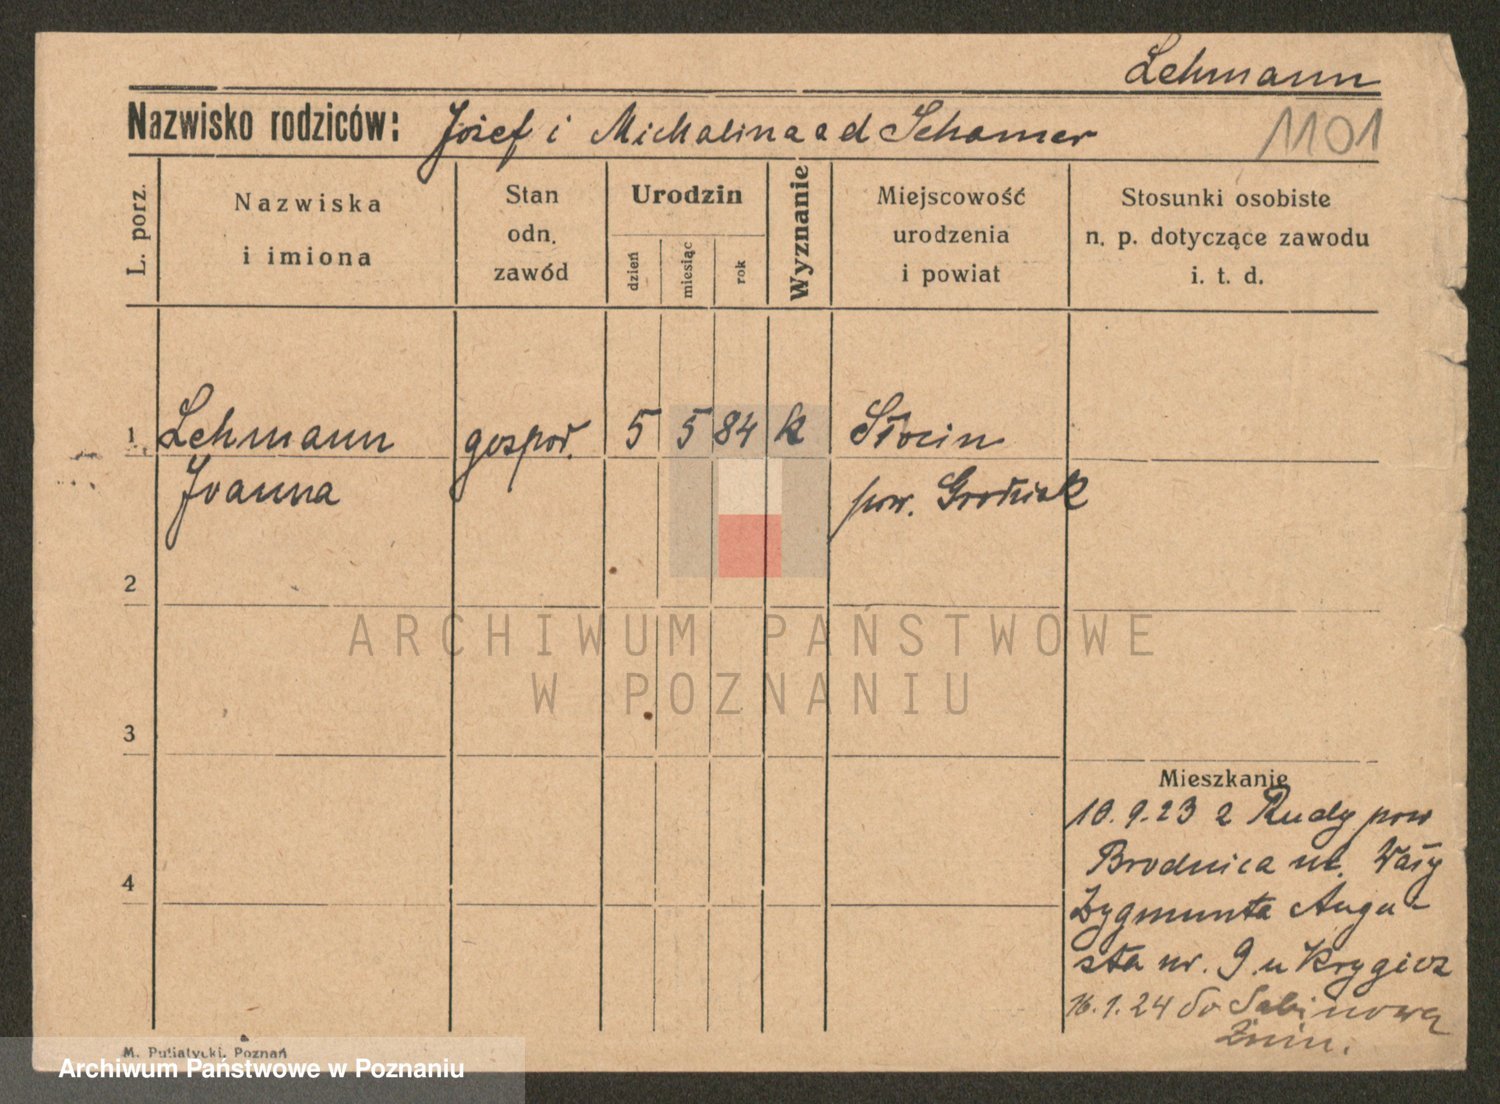 Lehmann
Nazwisko rodziców: Józef i Michalina z d Schamer
1101
L. porz.
Nazwiska
i imiona
Stan
odn.
zawód
Urodzin
dzień
miesiąc
rok
Wyznanie
Miejscowość
urodzenia
i powiat
Stosunki osobiste
n. p. dotyczące zawodu
i. t. d.
1 Lehmann gospod. 5 5 84 k Słocin
Joanna pow. Grodzisk
2
3
4
Mieszkanie
10.9.23 z Rudy pow
Brodnica ul. Wały
Zygmunta Augu-
sta nr. 9 u Krygier
16.1.24 do
Żnin.
M. Putiatycki, Poznań
ARCHIWUM PAŃSTWOWE
W POZNANIU
Archiwum Państwowe w Poznaniu